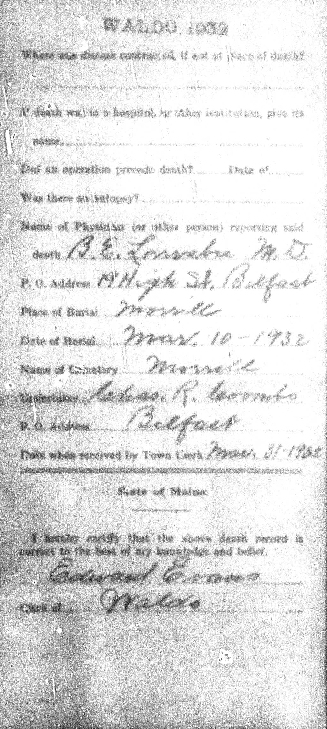 WALDO 1932
Where was disease contracted, if not at place of death?
If death was in a hospital, or other institution, give its
name
Did an operation precede death? Date of
Was there an autopsy?
Name of Physician (or other person) reporting said
death B. E. M. D.
P. O. Address High St. Belfast
Place of Burial Morrill
Date of Burial Mar. 10-1932
Name of Cemetery Morrill
Undertaker Chas. R. Coombs
P. O. Address Belfast
Date when received by Town Clerk Mar. 31-1932
State of Maine
I hereby certify that the above death record is
correct to the best of my knowledge and belief.
Edward Evans
Clerk of Waldo